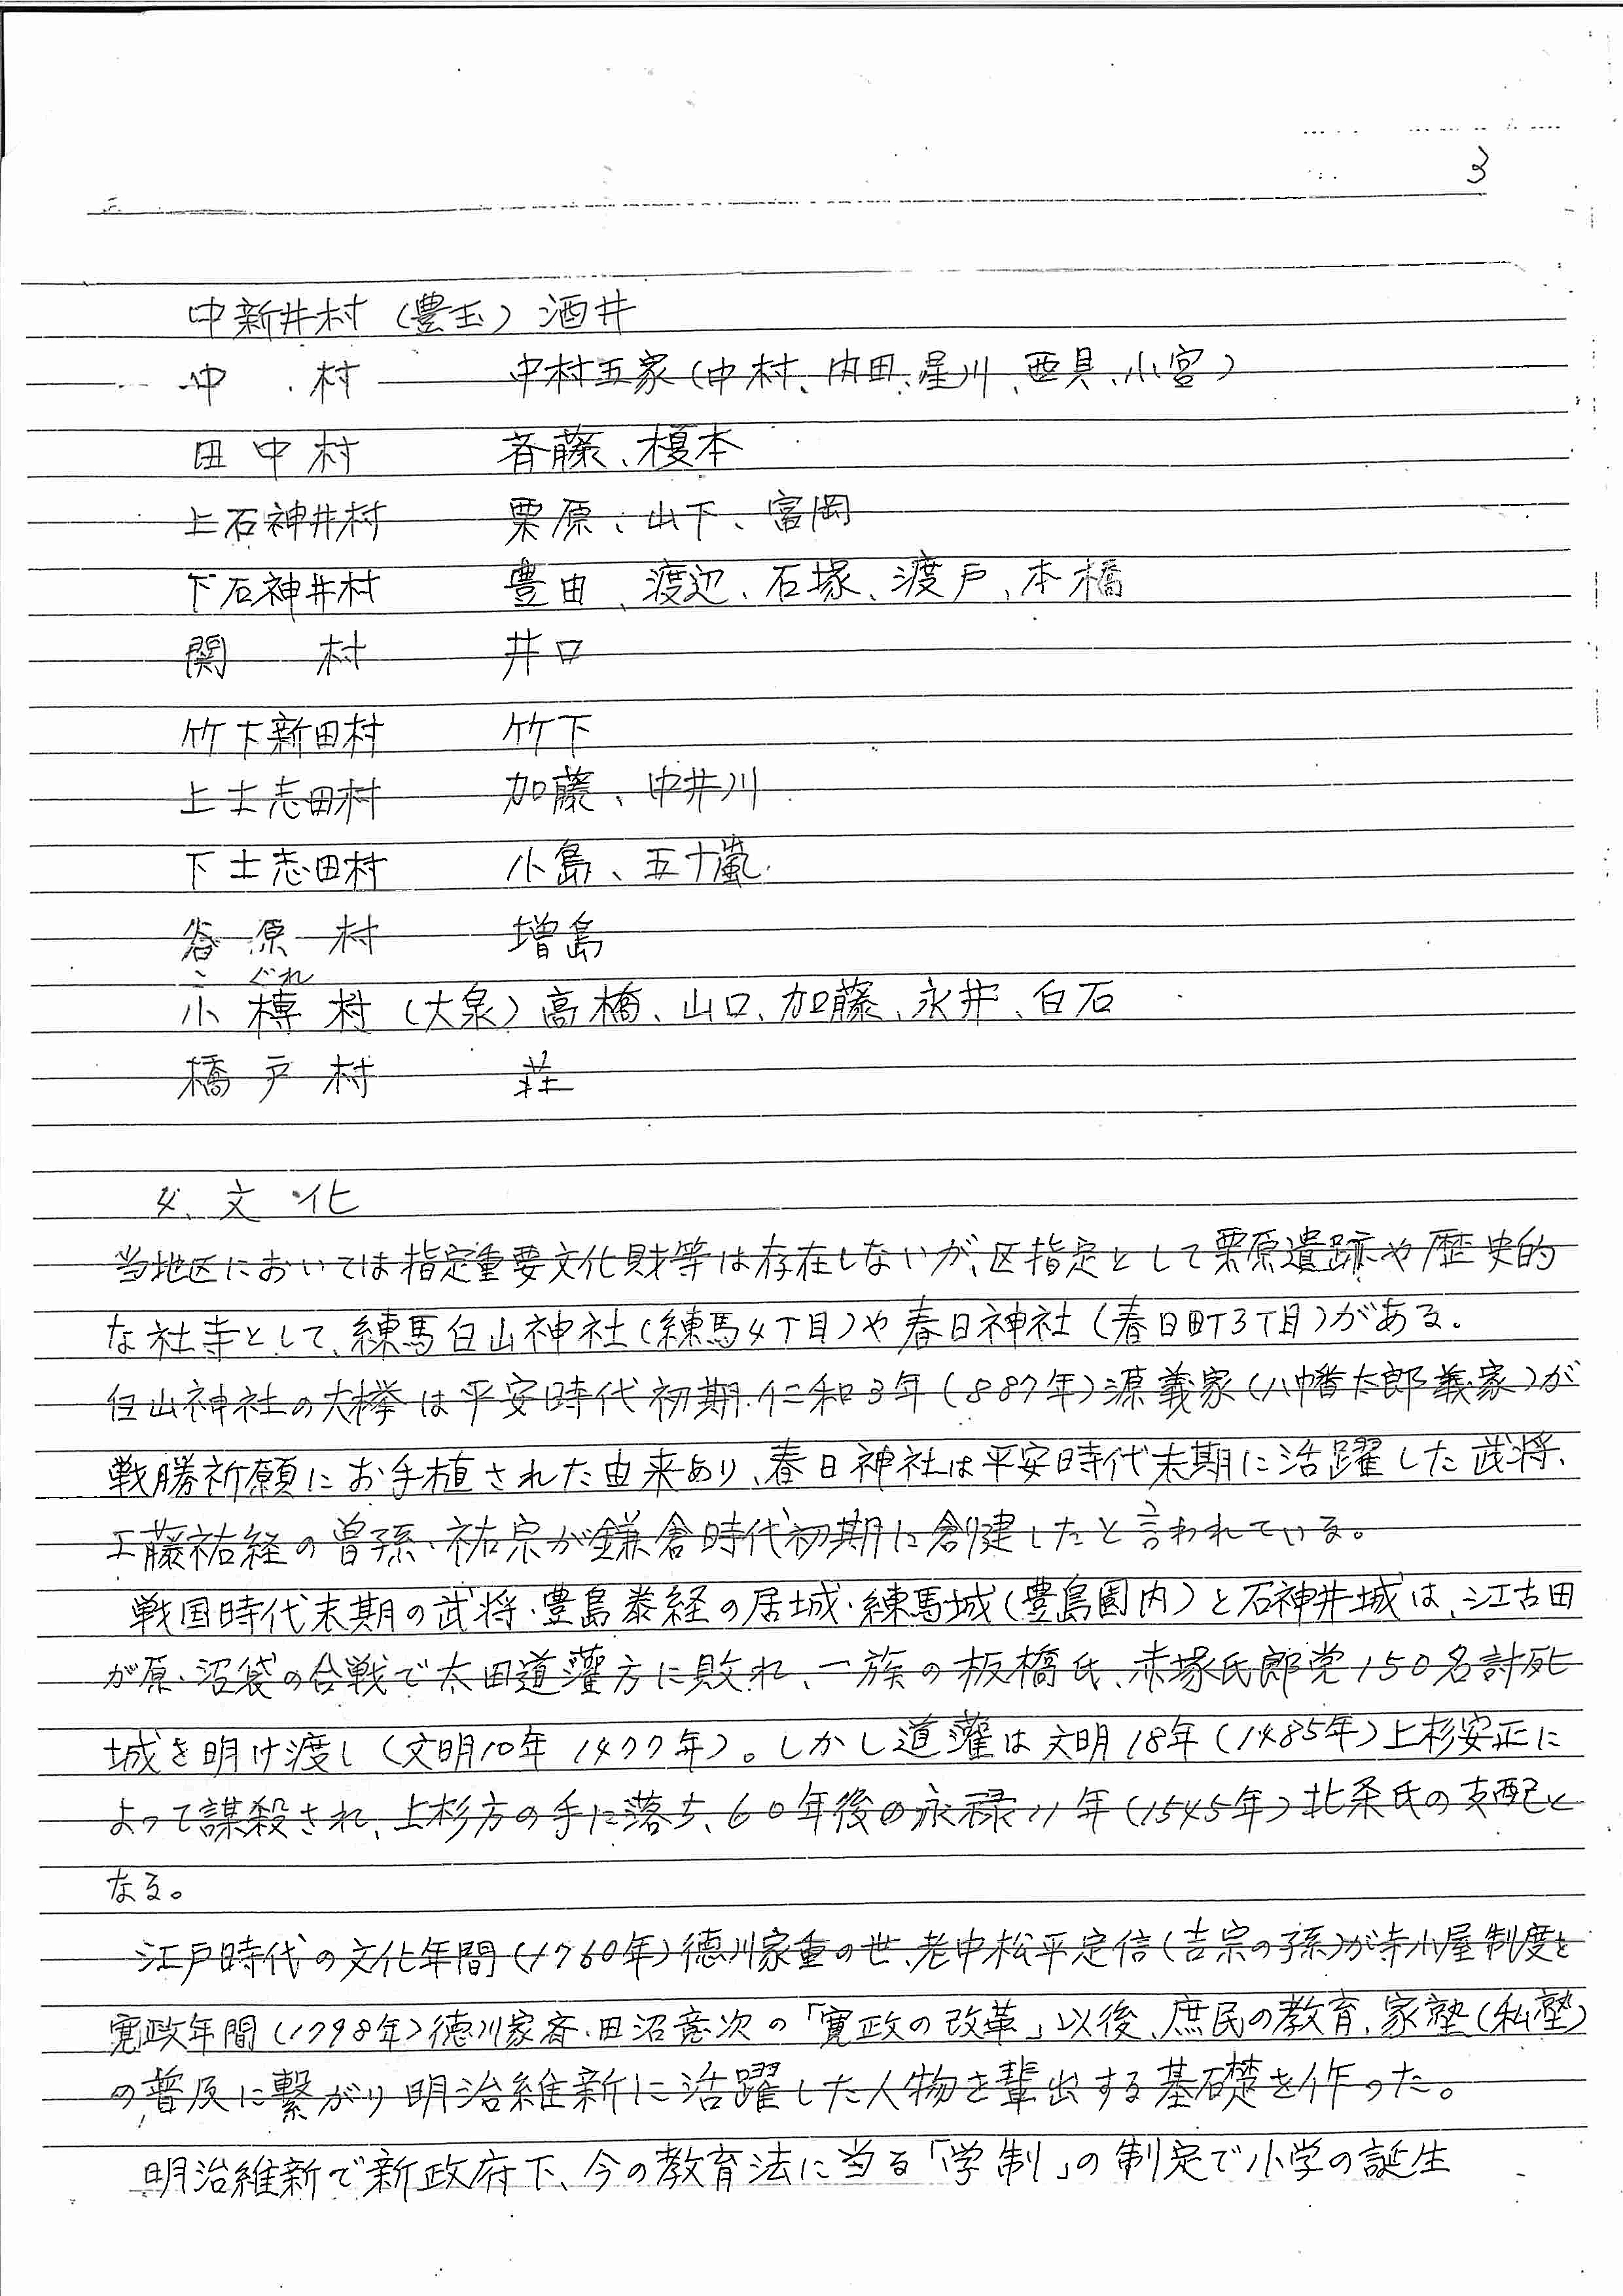 3
中新井村（豊玉）酒井
中　村　中村五家（中村、内田、星川、西貝、小宮）
田中村　斉藤、榎本
上石神井村　栗原、山下、富岡
下石神井村　豊田、渡辺、石塚、渡戸、本橋
関　村　井口
竹下新田村　竹下
上士志田村　加藤、中井川
下士志田村　小島、五十嵐
谷原村　増島
こぐれ
小榑村（大泉）高橋、山口、加藤、永井、白石
橋戸村　荘
4、文化
当地区においては指定重要文化財等は存在しないが、区指定として栗原遺跡や歴史的
な社寺として、練馬白山神社（練馬4丁目）や春日神社（春日町3丁目）がある。
白山神社の大欅は平安時代初期・仁和3年（887年）源義家（八幡太郎義家）が
戦勝祈願にお手植された由来あり、春日神社は平安時代末期に活躍した武将、
工藤祐経の曽孫・祐宗が鎌倉時代初期に創建したと言われている。
戦国時代末期の武将・豊島泰経の居城・練馬城（豊島園内）と石神井城は、江古田
が原・沼袋の合戦で太田道灌方に敗れ、一族の板橋氏、赤塚氏郎党150名討死
城を明け渡し（文明10年 1477年）。しかし道灌は文明18年（1485年）上杉安正に
よって謀殺され、上杉方の手に落ち、60年後の永禄11年（1545年）北条氏の支配と
なる。
江戸時代の文化年間（1760年）徳川家重の世、老中松平定信（吉宗の孫）が寺小屋制度を
寛政年間（1798年）徳川家斉・田沼意次の「寛政の改革」以後、庶民の教育、家塾（私塾）
の普及に繋がり明治維新に活躍した人物を輩出する基礎を作った。
明治維新で新政府下、今の教育法に当る「学制」の制定で小学の誕生